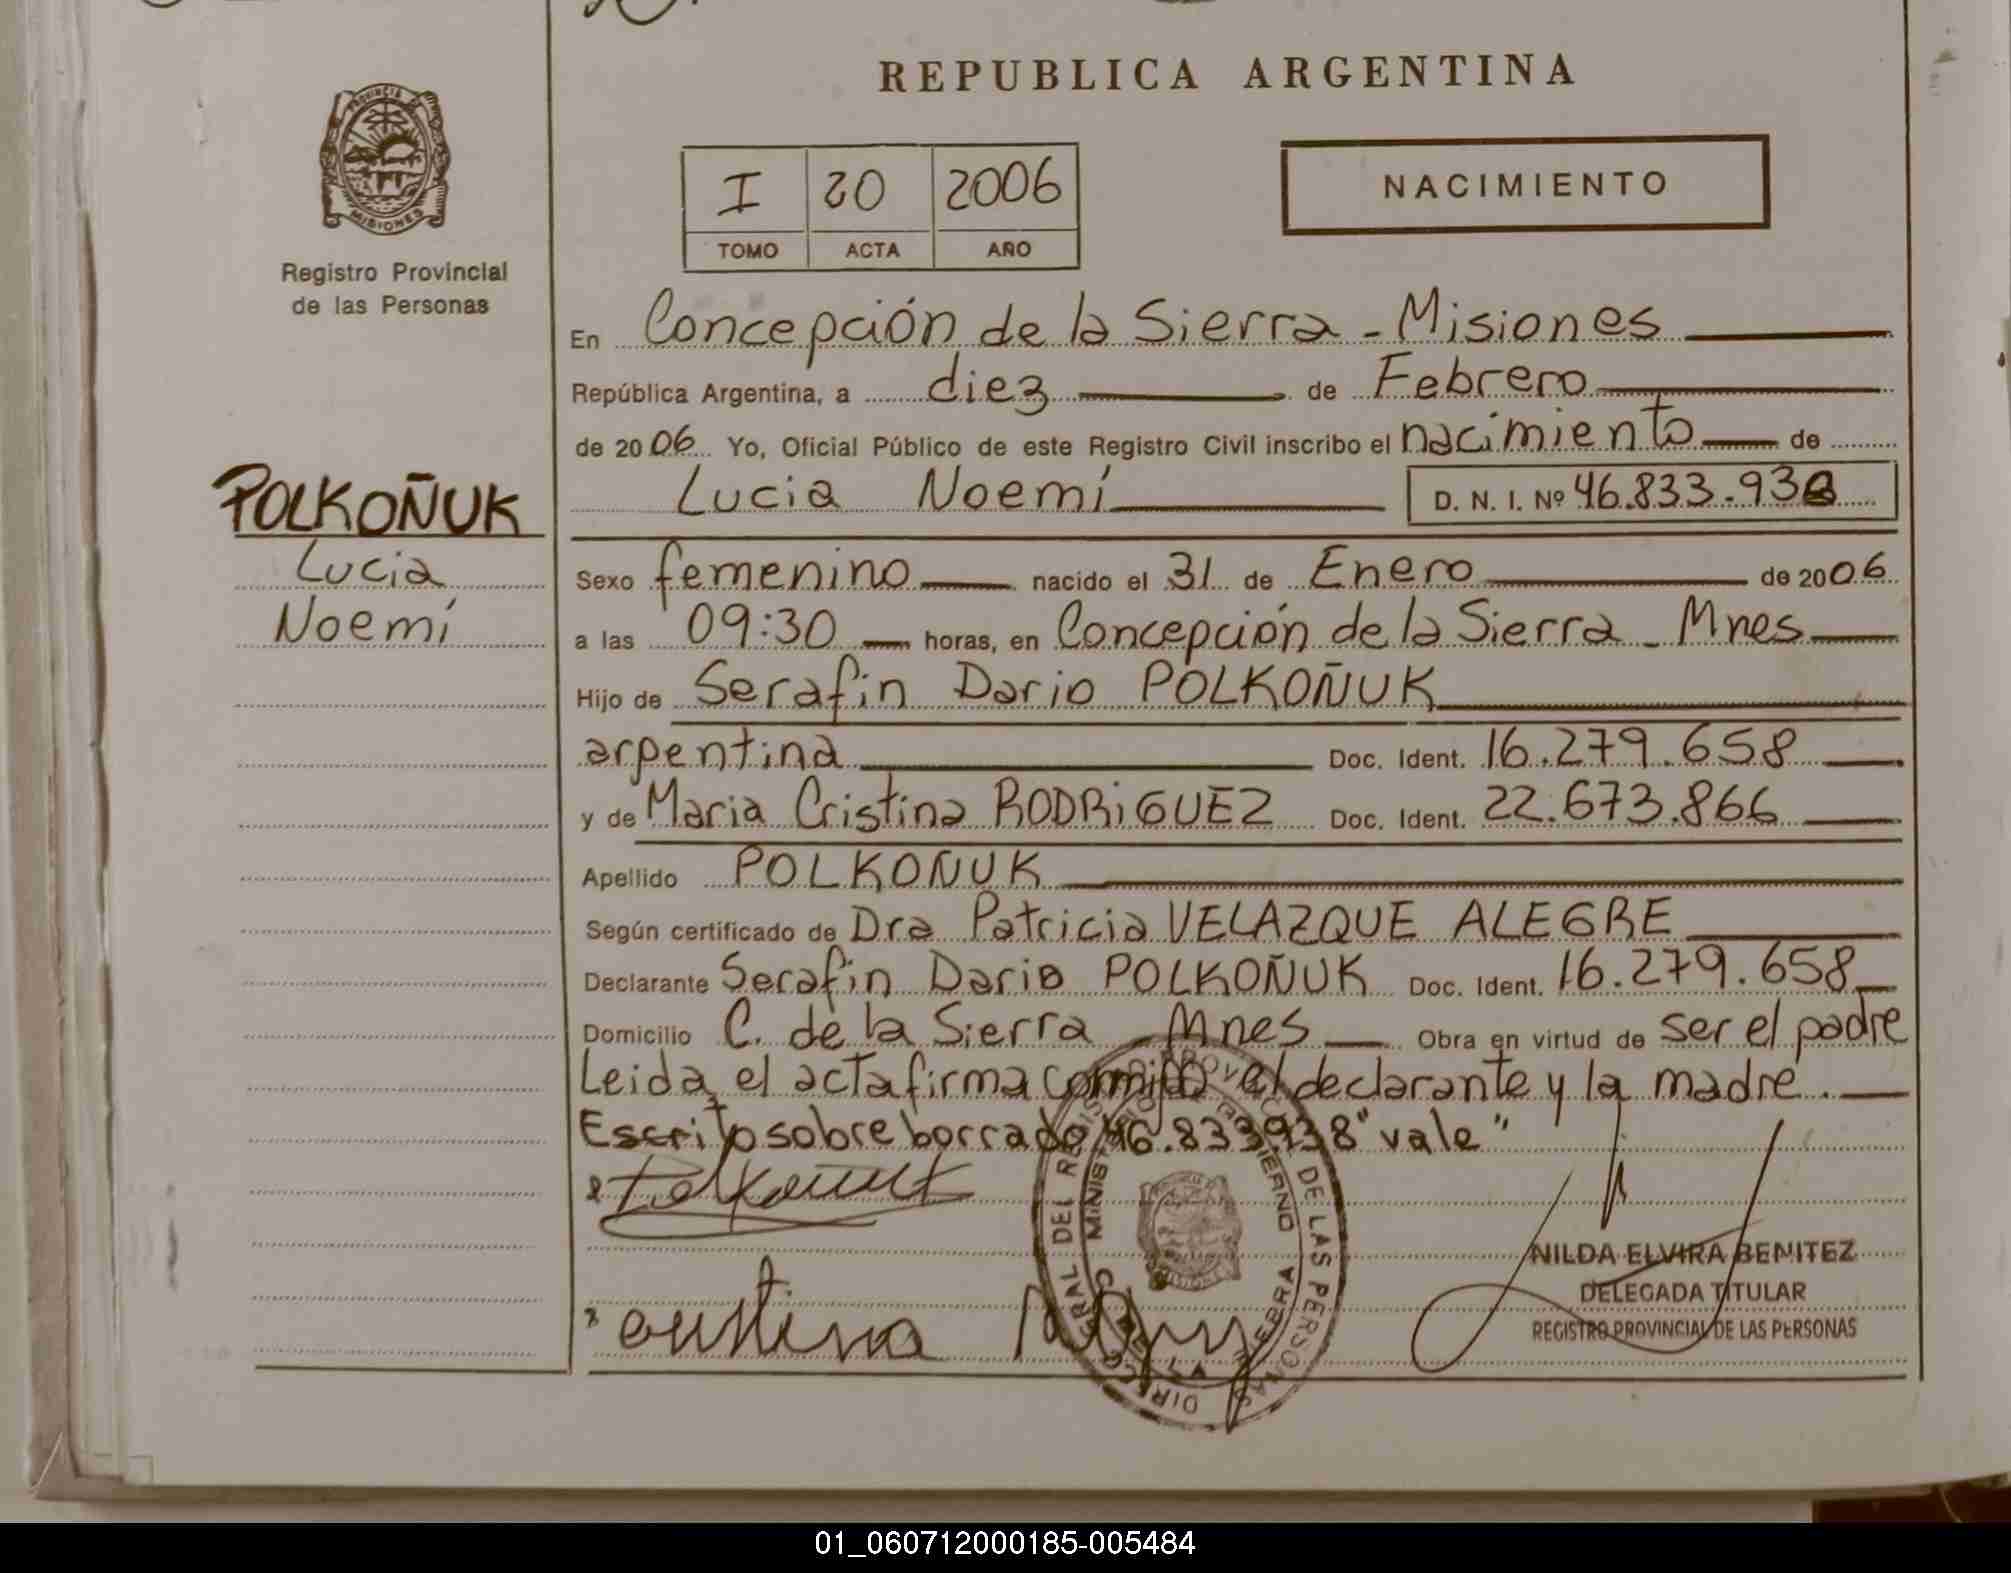 REPUBLICA ARGENTINA
PROVINCIA DE
MISIONES
Registro Provincial
de las Personas
I 20 2006
TOMO ACTA AÑO
NACIMIENTO
En Concepción de la Sierra - Misiones
República Argentina, a diez de Febrero
de 2006 Yo, Oficial Público de este Registro Civil inscribo el nacimiento de
Lucia Noemí D. N. I. Nº 46.833.938
POLKOÑUK
Lucia
Noemí
Sexo femenino nacido el 31 de Enero de 2006
a las 09:30 horas, en Concepción de la Sierra - Mnes
Hijo de Serafin Dario POLKOÑUK
argentina Doc. Ident. 16.279.658
y de Maria Cristina RODRiGUEZ Doc. Ident. 22.673.866
Apellido POLKOÑUK
Según certificado de Dra Patricia VELAZQUE ALEGRE
Declarante Serafin Dario POLKOÑUK Doc. Ident. 16.279.658
Domicilio C. de la Sierra - Mnes Obra en virtud de ser el padre
Leida el acta firma conmigo el declarante y la madre.
Escrito sobre borrado 46.833.938 "vale"
Polkoñuk
Cristina
DIRECC. GRAL DEL REGISTRO PROVINCIAL DE LAS PERSONAS
MINISTERIO DE GOBIERNO
NILDA ELVIRA BENITEZ
DELEGADA TITULAR
REGISTRO PROVINCIAL DE LAS PERSONAS
01_060712000185-005484